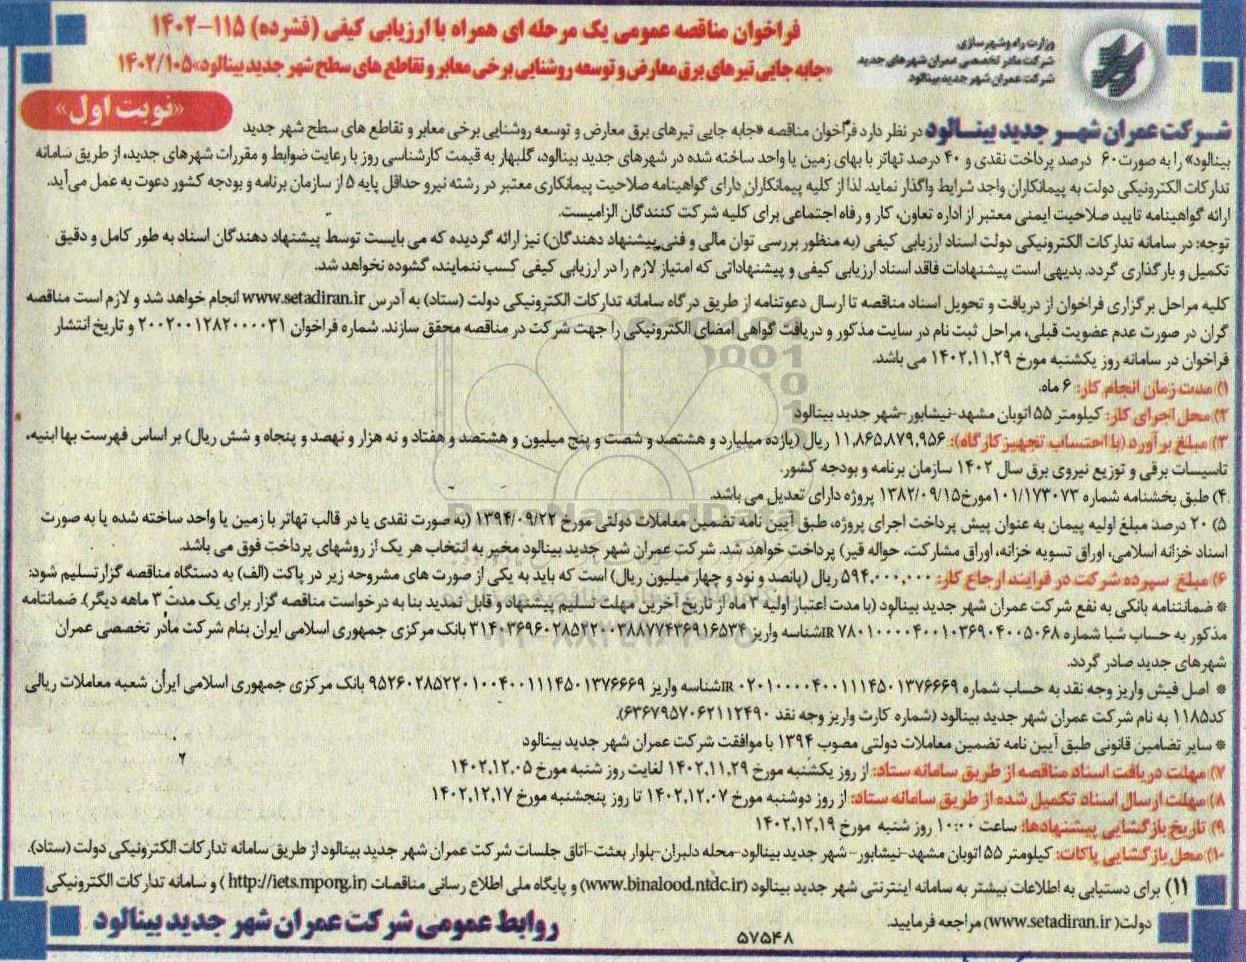 فراخوان مناقصه عمومی یک مرحله ای همراه با ارزیابی کیفی (فشرده) ۱۱۵-۱۴۰۲
«جابه جایی تیرهای برق معارض و توسعه روشنایی برخی معابر و تقاطع های سطح شهر جدید بینالود» ۱۴۰۲/۱۰۵
وزارت راه و شهرسازی
شرکت مادر تخصصی عمران شهرهای جدید
شرکت عمران شهر جدید بینالود
«نوبت اول»
شرکت عمران شهر جدید بینالود در نظر دارد فراخوان مناقصه «جابه جایی تیرهای برق معارض و توسعه روشنایی برخی معابر و تقاطع های سطح شهر جدید
بینالود» را به صورت ۶۰ درصد پرداخت نقدی و ۴۰ درصد تهاتر با بهای زمین یا واحد ساخته شده در شهرهای جدید بینالود، گلبهار به قیمت کارشناسی روز با رعایت ضوابط و مقررات شهرهای جدید، از طریق سامانه
تدارکات الکترونیکی دولت به پیمانکاران واجد شرایط واگذار نماید. لذا از کلیه پیمانکاران دارای گواهینامه صلاحیت پیمانکاری معتبر در رشته نیرو حداقل پایه ۵ از سازمان برنامه و بودجه کشور دعوت به عمل می‌آید.
ارائه گواهینامه تایید صلاحیت ایمنی معتبر از اداره تعاون، کار و رفاه اجتماعی برای کلیه شرکت کنندگان الزامیست.
توجه: در سامانه تدارکات الکترونیکی دولت اسناد ارزیابی کیفی (به منظور بررسی توان مالی و فنی پیشنهاد دهندگان) نیز ارائه گردیده که می بایست توسط پیشنهاد دهندگان اسناد به طور کامل و دقیق
تکمیل و بارگذاری گردد. بدیهی است پیشنهادات فاقد اسناد ارزیابی کیفی و پیشنهاداتی که امتیاز لازم را در ارزیابی کیفی کسب ننمایند، گشوده نخواهد شد.
کلیه مراحل برگزاری فراخوان از دریافت و تحویل اسناد مناقصه تا ارسال دعوتنامه از طریق درگاه سامانه تدارکات الکترونیکی دولت (ستاد) به آدرس www.setadiran.ir انجام خواهد شد و لازم است مناقصه
گران در صورت عدم عضویت قبلی، مراحل ثبت نام در سایت مذکور و دریافت گواهی امضای الکترونیکی را جهت شرکت در مناقصه محقق سازند. شماره فراخوان ۲۰۰۲۰۰۱۲۸۲۰۰۰۰۳۱ و تاریخ انتشار
فراخوان در سامانه روز یکشنبه مورخ ۱۴۰۲,۱۱,۲۹ می باشد.
۱) مدت زمان انجام کار: ۶ ماه.
۲) محل اجرای کار: کیلومتر ۵۵ اتوبان مشهد-نیشابور-شهر جدید بینالود
۳) مبلغ برآورد (با احتساب تجهیز کارگاه): ۱۱,۸۶۵,۸۷۹,۹۵۶ ریال (یازده میلیارد و هشتصد و شصت و پنج میلیون و هشتصد و هفتاد و نه هزار و نهصد و پنجاه و شش ریال) بر اساس فهرست بها ابنیه،
تاسیسات برقی و توزیع نیروی برق سال ۱۴۰۲ سازمان برنامه و بودجه کشور.
۴) طبق بخشنامه شماره ۱۰۱/۱۷۳۰۷۳ مورخ ۱۳۸۲/۰۹/۱۵ پروژه دارای تعدیل می باشد.
۵) ۲۰ درصد مبلغ اولیه پیمان به عنوان پیش پرداخت اجرای پروژه، طبق آیین نامه تضمین معاملات دولتی مورخ ۱۳۹۴/۰۹/۲۲ (به صورت نقدی یا در قالب تهاتر با زمین یا واحد ساخته شده یا به صورت
اسناد خزانه اسلامی، اوراق تسویه خزانه، اوراق مشارکت، حواله قیر) پرداخت خواهد شد. شرکت عمران شهر جدید بینالود مخیر به انتخاب هر یک از روشهای پرداخت فوق می باشد.
۶) مبلغ سپرده شرکت در فرایند ارجاع کار: ۵۹۴,۰۰۰,۰۰۰ ریال (پانصد و نود و چهار میلیون ریال) است که باید به یکی از صورت های مشروحه زیر در پاکت (الف) به دستگاه مناقصه گزار تسلیم شود:
* ضمانتنامه بانکی به نفع شرکت عمران شهر جدید بینالود (با مدت اعتبار اولیه ۳ ماه از تاریخ آخرین مهلت تسلیم پیشنهاد و قابل تمدید بنا به درخواست مناقصه گزار برای یک مدت ۳ ماهه دیگر). ضمانتنامه
مذکور به حساب شبا شماره IR۷۸۰۱۰۰۰۰۴۰۰۱۰۳۶۹۰۴۰۰۵۰۶۸ شناسه واریز ۳۱۴۰۳۶۹۶۰۲۸۵۲۲۰۰۳۸۸۷۷۴۳۶۹۱۶۵۳۴ بانک مرکزی جمهوری اسلامی ایران بنام شرکت مادر تخصصی عمران
شهرهای جدید صادر گردد.
* اصل فیش واریز وجه نقد به حساب شماره IR۰۲۰۱۰۰۰۰۴۰۰۱۱۱۴۵۰۱۳۷۶۶۶۹ شناسه واریز ۹۵۲۶۰۲۸۵۲۲۰۱۰۰۴۰۰۱۱۱۴۵۰۱۳۷۶۶۶۹ بانک مرکزی جمهوری اسلامی ایران شعبه معاملات ریالی
کد۱۱۸۵ به نام شرکت عمران شهر جدید بینالود (شماره کارت واریز وجه نقد ۶۳۶۷۹۵۷۰۶۲۱۱۲۴۹۰).
* سایر تضامین قانونی طبق آیین نامه تضمین معاملات دولتی مصوب ۱۳۹۴ با موافقت شرکت عمران شهر جدید بینالود
۷) مهلت دریافت اسناد مناقصه از طریق سامانه ستاد: از روز یکشنبه مورخ ۱۴۰۲,۱۱,۲۹ لغایت روز شنبه مورخ ۱۴۰۲,۱۲,۰۵
۸) مهلت ارسال اسناد تکمیل شده از طریق سامانه ستاد: از روز دوشنبه مورخ ۱۴۰۲,۱۲,۰۷ تا روز پنجشنبه مورخ ۱۴۰۲,۱۲,۱۷
۹) تاریخ بازگشایی پیشنهادها: ساعت ۱۰:۰۰ روز شنبه مورخ ۱۴۰۲,۱۲,۱۹
۱۰) محل بازگشایی پاکات: کیلومتر ۵۵ اتوبان مشهد-نیشابور- شهر جدید بینالود-محله دلبران-بلوار بعثت-اتاق جلسات شرکت عمران شهر جدید بینالود از طریق سامانه تدارکات الکترونیکی دولت (ستاد).
۱۱) برای دستیابی به اطلاعات بیشتر به سامانه اینترنتی شهر جدید بینالود (www.binalood.ntdc.ir) و پایگاه ملی اطلاع رسانی مناقصات (http://iets.mporg.ir) و سامانه تدارکات الکترونیکی
دولت( www.setadiran.ir) مراجعه فرمایید.
روابط عمومی شرکت عمران شهر جدید بینالود
۵۷۵۴۸